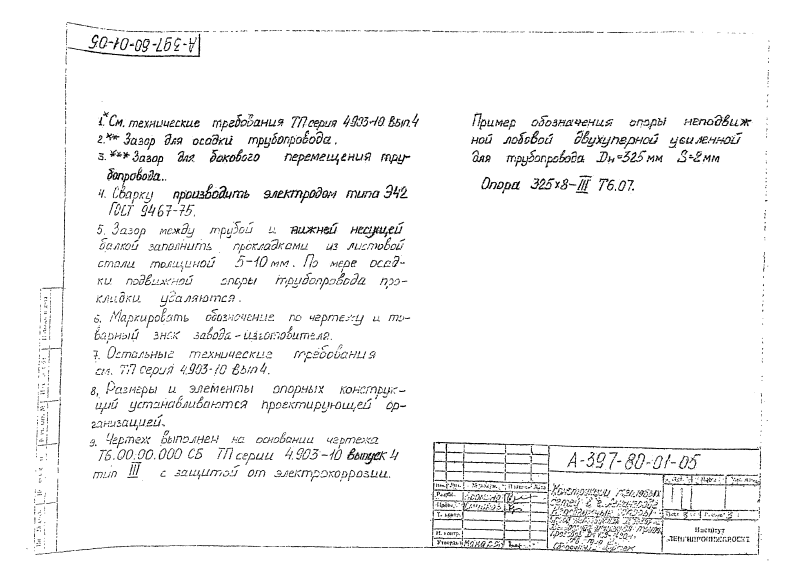 А-397-80-01-05
1.* См. технические требования ТП серия 4.903-10 Вып.4
2.** Зазор для осадки трубопровода.
3.*** Зазор для бокового перемещения тру-
бопровода.
4. Сварку производить электродом типа Э42
ГОСТ 9467-75.
5. Зазор между трубой и нижней несущей
балкой заполнить прокладками из листовой
стали толщиной 5-10 мм. По мере осад-
ки подвижной опоры трубопровода про-
кладки удаляются.
6. Маркировать обозначение по чертежу и то-
варный знак завода-изготовителя.
7. Остальные технические требования
см. ТП серия 4.903-10 Вып 4.
8. Размеры и элементы опорных конструк-
ций устанавливаются проектирующей ор-
ганизацией.
9. Чертеж выполнен на основании чертежа
Т6.00.00.000 СБ ТП серии 4.903-10 выпуск 4
тип III с защитой от электрокоррозии.
Пример обозначения опоры неподвиж
ной лобовой двухупорной усиленной
для трубопровода Dн=325мм S=2мм
Опора 325х8-III Т6.07.
А-397-80-01-05
Разраб.
Н. контр.
Конструкции тепловых
сетей
Институт
ЛЕНГИПРОИНЖПРОЕКТ